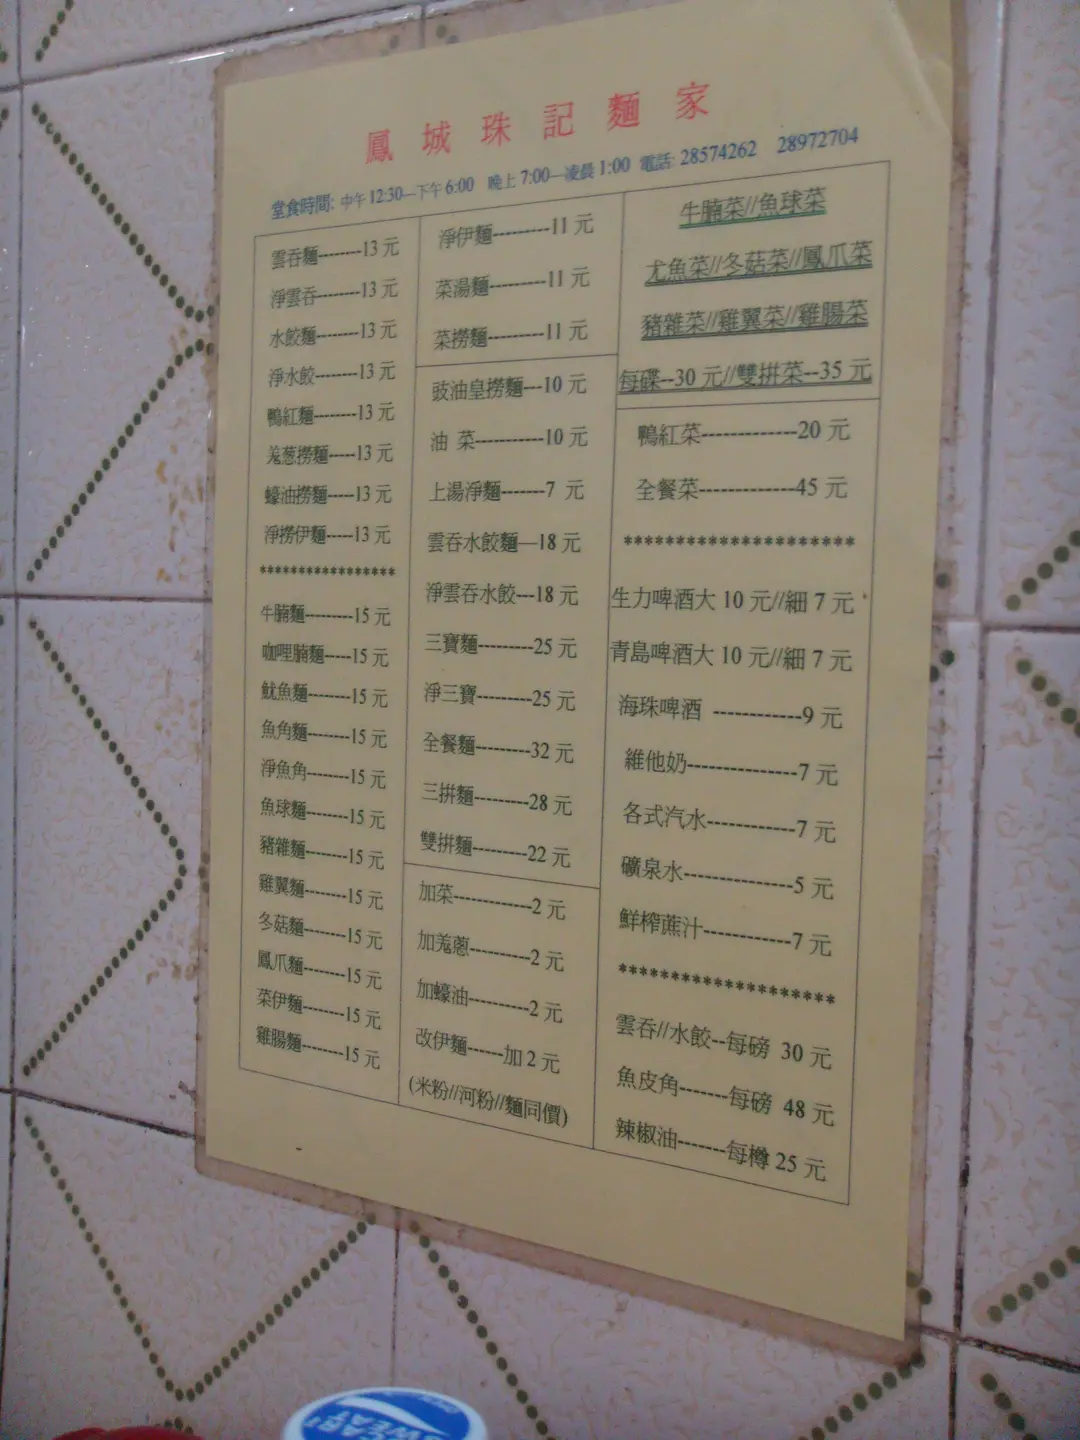 鳳城珠記麵家
堂食時間: 中午 12:30—下午 6:00 晚上 7:00—凌晨 1:00 電話: 28574262 28972704
雲吞麵--------13 元
淨雲吞--------13 元
水餃麵--------13 元
淨水餃--------13 元
鴨紅麵--------13 元
羗葱撈麵-----13 元
蠔油撈麵-----13 元
淨撈伊麵-----13 元
*****************
牛腩麵--------15 元
咖哩腩麵-----15 元
魷魚麵--------15 元
魚角麵--------15 元
淨魚角--------15 元
魚球麵--------15 元
豬雜麵--------15 元
雞翼麵--------15 元
冬菇麵--------15 元
鳳爪麵--------15 元
菜伊麵--------15 元
雞腸麵--------15 元
淨伊麵---------11 元
菜湯麵---------11 元
菜撈麵---------11 元
豉油皇撈麵---10 元
油 菜-----------10 元
上湯淨麵-------7 元
雲吞水餃麵—18 元
淨雲吞水餃---18 元
三寶麵---------25 元
淨三寶---------25 元
全餐麵---------32 元
三拼麵---------28 元
雙拼麵---------22 元
加菜-------------2 元
加羗蔥----------2 元
加蠔油----------2 元
改伊麵------加 2 元
(米粉//河粉//麵同價)
牛腩菜//魚球菜
尤魚菜//冬菇菜//鳳爪菜
豬雜菜//雞翼菜//雞腸菜
每碟--30 元//雙拼菜--35 元
鴨紅菜-------------20 元
全餐菜-------------45 元
*********************
生力啤酒大 10 元//細 7 元
青島啤酒大 10 元//細 7 元
海珠啤酒 ------------9 元
維他奶---------------7 元
各式汽水------------7 元
礦泉水---------------5 元
鮮榨蔗汁------------7 元
*********************
雲吞//水餃--每磅 30 元
魚皮角-------每磅 48 元
辣椒油-------每樽 25 元